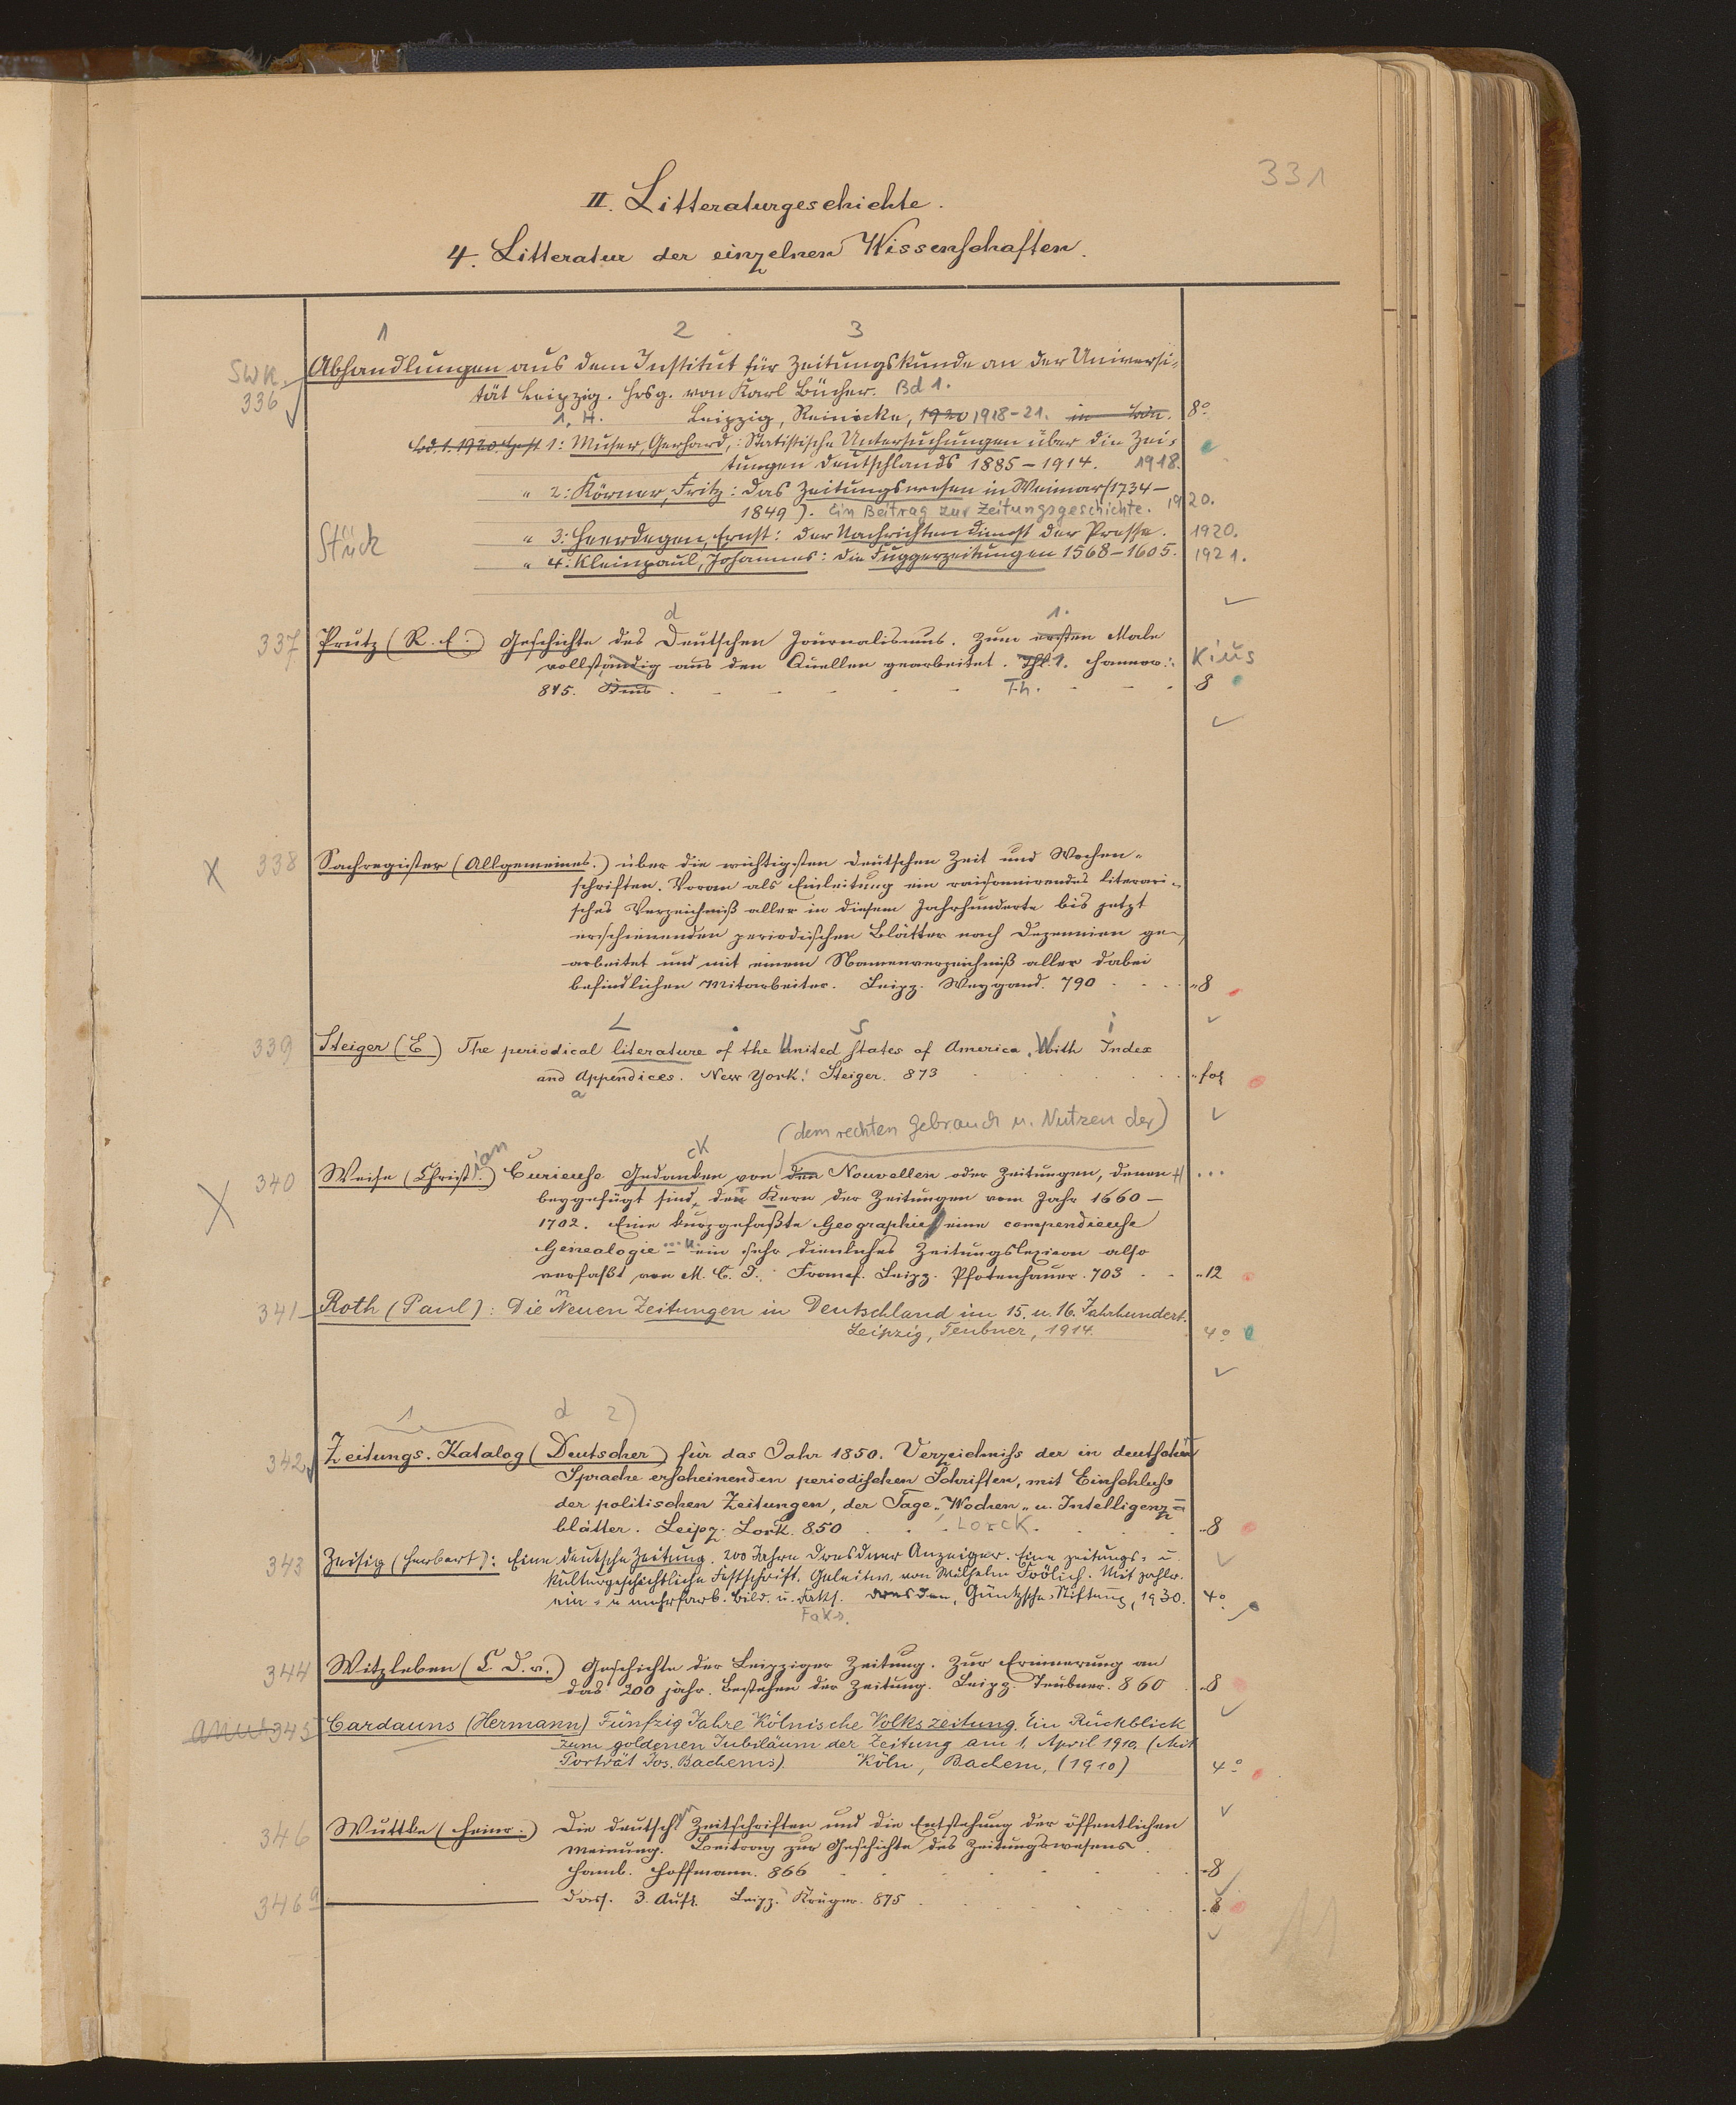 331
II. Litteraturgeschichte.
4. Litteratur der einzelnen Wissenschaften.
1 2 3
SWK. 336 Abhandlungen aus dem Institut für Zeitungskunde an der Universi-
tät Leipzig. Hrsg. von Karl Bücher. Bd 1.
1. H. Leipzig, Reinicke, 1920 1918-21. 8°
Bd. 1. 1920. Heft 1: Muser, Gerhard,: Statistische Untersuchungen über die Zei-
tungen Deutschlands 1885-1914. 1918.
" 2: Körner, Fritz: Das Zeitungswesen in Weimar (1734-
1849). Ein Beitrag zur Zeitungsgeschichte. 1920.
Stück " 3: Heerdegen, Ernst: Der Nachrichtendienst der Presse. 1920.
" 4: Kleinpaul, Johannes: Die Fuggerzeitungen 1568-1605. 1921.
d 1.
337 Prutz (R. E.) Geschichte des Deutschen Journalismus. Zum ersten Male
vollständig aus den Quellen gearbeitet. Thl. 1. Hannov: Kius
845. Kius Th. 8
338 Sachregister (Allgemeines.) über die wichtigsten deutschen Zeit und Wochen-
schriften. Voran als Einleitung ein raisonnirendes literari-
sches Verzeichniß aller in diesem Jahrhunderte bis jetzt
erschienenden periodischen Blätter nach Dezennien ge-
arbeitet und mit einem Namenverzeichniß aller dabei
befindlichen Mitarbeiter. Leipz. Weygand. 790 8
L S i
339 Steiger (E) The periodical literature of the United States of America, With Index
and Appendices. New York: Steiger. 873 fol
a
(dem rechten Gebrauch u. Nutzen der)
ian ck
340 Weise (Christ.) Curieuse Gedanken von den Nouvellen oder Zeitungen, denen
beygefügt sind, der Kern der Zeitungen vom Jahr 1660-
1702. Eine kurzgefaßte Geographie, eine compendieuse
Genealogie ... u. ein sehr dienliches Zeitungslexicon also
verfaßt von M. C. J. Francf. Leipz. Pfotenhauer. 703 12
n
341 Roth (Paul): Die Neuen Zeitungen in Deutschland im 15. u. 16. Jahrhundert.
Leipzig, Teubner, 1914. 4°
1 d 2)
342 Zeitungs-Katalog (Deutscher) für das Jahr 1850. Verzeichniss der in deutscher
Sprache erscheinenden periodischen Schriften, mit Einschluss
der politischen Zeitungen, der Tage-, Wochen- u. Intelligenz-
blätter. Leipz. Lork. 850 Lorck. 8
343 Zeisig (Herbert): Eine deutsche Zeitung. 200 Jahre Dresdner Anzeiger. Eine zeitungs- u.
kulturgeschichtliche Festschrift. Geleitw. von Wilhelm Frölich. Mit zahlr.
ein- u mehrfarb. Bild. u. Faks. Dresden, Güntzsche-Stiftung, 1930. 4°
Faks.
344 Witzleben (C D. v.) Geschichte der Leipziger Zeitung. Zur Erinnerung an
das 200 jähr. Bestehen der Zeitung. Leipz. Teubner. 860 8
345 Cardauns (Hermann) Fünfzig Jahre Kölnische Volkszeitung. Ein Rückblick
zum goldenen Jubiläum der Zeitung am 1. April 1910. (Mit
Porträt Jos. Bachems). Köln, Bachem, (1910) 4°
346 Wuttke (Heinr.) Die deutschen Zeitschriften und die Entstehung der öffentlichen
Meinung. Beitrag zur Geschichte des Zeitungswesens.
Hamb. Hoffmann. 866 8
346a Dass. 3. Aufl. Leipz. Krüger. 875 8